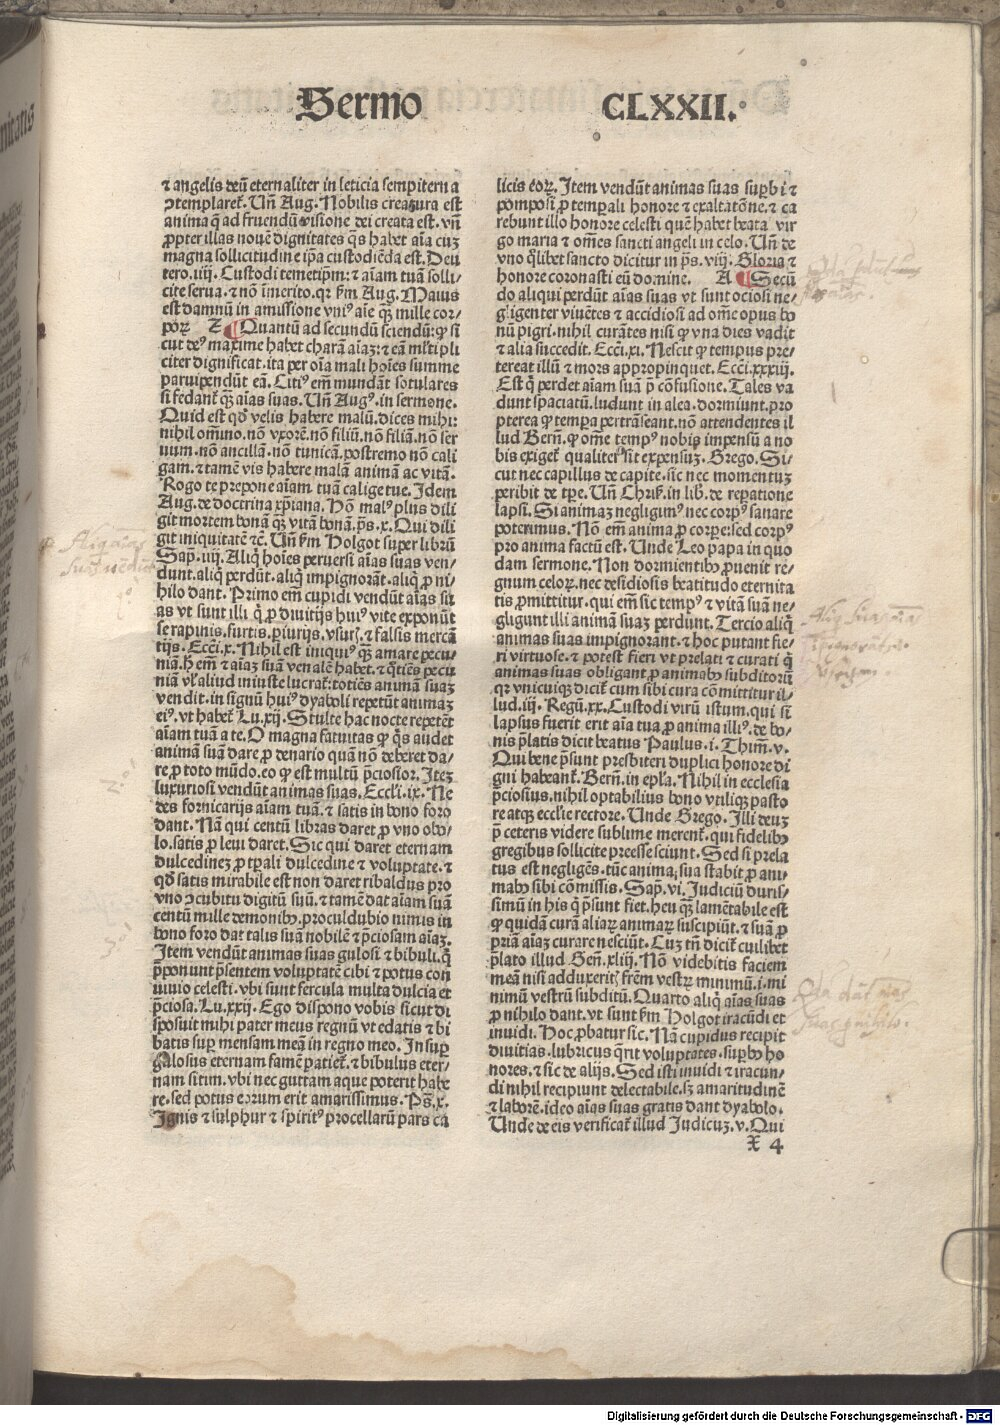 Sermo CLXXII.
⁊ angelis deū eternaliter in leticia sempiterna
ꝯtemplaret᷑. Un̄ Aug. Nobilis creatura est
anima q̄ ad fruendū visione dei creata est. vn̄
ꝓpter illas nouē dignitates q̄s habet aīa cuꝫ
magna sollicitudine ip̄a custodiēda est. Deu
tero. iiij. Custodi temetip̄m: ⁊ aīam tuā solli/
cite serua. ⁊ nō īmerito. qꝛ ẜm Aug. Maius
est damnū in amissione vniꝰ aīe qꝫ mille cor/
poꝝ Z Quantū ad secundū sciendū: ꝙ si
cut deꝰ maxime habet charā aīaꝫ: ⁊ eā ml̓tipli
citer dignificat. ita per oīa mali hoīes summe
paruipendūt eā. Citiꝰ em̄ mundāt sotulares
si fedant᷑ qꝫ aīas suas. Un̄ Augꝰ. in sermone.
Quid est qd̄ velis habere malū. dices mihi:
nihil om̄ino. nō vxorē. nō filiū. nō filiā. nō ser
uum. nō ancillā. nō tunicā. postremo nō cali
gam. ⁊ tamē vis habere malā animā ac vitā.
Rogo te prepone aīam tuā calige tue. Idem
Aug. de doctrina xp̄iana. Nō malꝰ plus dili
git mortem bonā qꝫ vitā bonā. ps̄. x. Qui dili
git iniquitatē ⁊c̄. Un̄ ẜm Holgot super librū
Sap̄. iiij. Aliq̄ hoīes peruersi aīas suas ven/
dunt. aliq̄ perdūt. aliq̄ impignorāt. aliq̄ ꝓ ni/
hilo dant. Primo em̄ cupidi vendūt aīas su
as vt sunt illi q̄ ꝓ diuitijs huiꝰ vite exponūt
se rapinis. furtis. ꝑiurijs. vsuꝝ. ⁊ falsis mercā
tijs. Ecci̅. x. Nihil est iniquiꝰ qꝫ amare pecu/
niā. h̄ em̄ ⁊ aīaꝫ suā venalē habet. ⁊ q̊tiēs pecu
niā vl̓ aliud iniuste lucrat᷑: totiēs animā suaꝫ
vendit. in signū huiꝰ dyaboli repetūt animaꝫ
eiꝰ. vt habet᷑ Lu. xij. Stulte hac nocte repetēt
aīam tuā a te. O magna fatuitas ꝙ q̄s audet
animā suā dare ꝓ denario quā nō deberet da/
re ꝓ toto mūdo. eo ꝙ est multū p̄ciosior. Iteꝫ
luxuriosi vendūt animas suas. Eccli̅. ix. Ne
des fornicarijs aīam tuā. ⁊ satis in bono foro
dant. Nā qui centū libras daret ꝓ vno obo/
lo. satis ꝓ leui daret. Sic qui daret eternam
dulcedineꝫ ꝓ tp̄ali dulcedine ⁊ voluptate. ⁊
qd̄ satis mirabile est non daret ribaldus pro
vno ꝯcubitu digitū suū. ⁊ tamē dat aīam suā
centū mille demonibꝰ. proculdubio nimis in
bono foro dat talis suā nobilē ⁊ p̄ciosam aīaꝫ.
Item vendūt animas suas gulosi ⁊ bibuli. q̄
p̄ponunt p̄sentem voluptatē cibi ⁊ potus con
uiuio celesti. vbi sunt fercula multa dulcia et
p̄ciosa. Lu. xxij. Ego dispono vobis sicut di
sposuit mihi pater meus regnū vt edatis ⁊ bi
batis suꝑ mensam meā in regno meo. In suꝑ
gulosus eternam famē patiet᷑. ⁊ bibulus eter/
nam sitim. vbi nec guttam aque poterit habe
re. sed potus eorum erit amarissimus. Ps̄. x.
Ignis ⁊ sulphur ⁊ spiritꝰ procellarū pars ca
licis eoꝝ. Item vendūt animas suas suꝑbi ⁊
pomposi ꝓ temꝑali honore ⁊ exaltatōne. ⁊ ca
rebunt illo honore celesti quē habet beata vir
go maria ⁊ om̄es sancti angeli in celo. Un̄ de
vno q̊libet sancto dicitur in ps̄. viij. Gloria ⁊
honore coronasti eū domine. A Secū
do aliqui perdūt aīas suas vt sunt ociosi ne/
gligenter viuētes ⁊ accidiosi ad om̄e opus bo
nū pigri. nihil curātes nisi ꝙ vna dies vadit
⁊ alia succedit. Ecci̅. xi. Nescit ꝙ tempus pre/
tereat illū ⁊ mors appropinquet. Ecci̅. xxxiij.
Est q̄ perdet aīam suā p̄ cōfusione. Tales va
dunt spaciatū. ludunt in alea. dormiunt. pro
pterea ꝙ temꝑa pertrāseant. nō attendentes il
lud Bern̄. ꝙ om̄e tempꝰ nobis impensū a no
bis exiget᷑ qualiter sūt expensuꝫ. Grego. Si/
cut nec capillus de capite. sic nec momentuꝫ
peribit de tpe. Un̄ Chris̓. in lib. de repatione
lapsi. Si animaꝫ negligimꝰ nec corpꝰ sanare
poterimus. Nō em̄ anima ꝓ corpe: sed corpꝰ
pro anima factū est. Unde Leo papa in quo
dam sermone. Non dormientibꝰ ꝓuenit re/
gnum celoꝝ. nec desidiosis beatitudo eternita
tis ꝓmittitur. qui em̄ sic tempꝰ ⁊ vitā suā ne/
gligunt illi animā suaꝫ perdūnt. Tercio aliq̄
animas suas impignorant. ⁊ hoc putant fie/
ri virtuose. ⁊ potest fieri vt prelati ⁊ curati q̄
animas suas obligant ꝓ animabꝰ subditorū
qꝛ vnicuiqꝫ dicit᷑ cum sibi cura cōmittitur il/
lud. iij. Regū. xx. Custodi virū istum. qui si
lapsus fuerit erit aīa tua ꝓ anima illiꝰ. de bo/
nis p̄latis dicit beatus Paulus. i. Thim̄. v.
Qui bene p̄sunt presbiteri duplici honore di
gni habeant᷑. Bern̄. in epl̓a. Nihil in ecclesia
p̄ciosius. nihil optabilius bono vtiliqꝫ pasto
re atqꝫ ecclie rectore. Unde Grego. Illi deuꝫ
p̄ ceteris videre sublime merent᷑. qui fidelibꝰ
gregibus sollicite preesse sciunt. Sed si prela
tus est negligēs. tūc anima sua stabit ꝓ ani/
mabꝰ sibi cōmissis. Sap̄. vi. Judiciū duris/
simū in his q̄ p̄sunt fiet. heu qꝫ lamētabile est
ꝙ quidā curā aliaꝝ animaꝝ suscipiūt. ⁊ suā ꝓ
priā aīaꝫ curare nesciūt. Cuꝫ tn̄ dicit᷑ cuilibet
p̄lato illud Gen̄. xliij. Nō videbitis faciem
meā nisi adduxerit᷑ fr̄em vestrꝝ minimū. i. mi
nimū vestrū subditū. Quarto aliq̄ aīas suas
ꝓ nihilo dant. vt sunt ẜm Holgot iracūdi et
inuidi. Hoc ꝓbatur sic. Nā cupidus recipit
diuitias. lubricus q̄rit voluptates. suꝑbꝰ ho
nores. ⁊ sic de alijs. Sed isti inuidi ⁊ iracun/
di nihil recipiunt delectabile. sꝫ amaritudinē
⁊ laborē. ideo aīas suas gratis dant dyabolo.
Unde de eis verificat᷑ illud Judicuꝫ. v. Qui
X 4
Digitalisierung gefördert durch die Deutsche Forschungsgemeinschaft - DFG